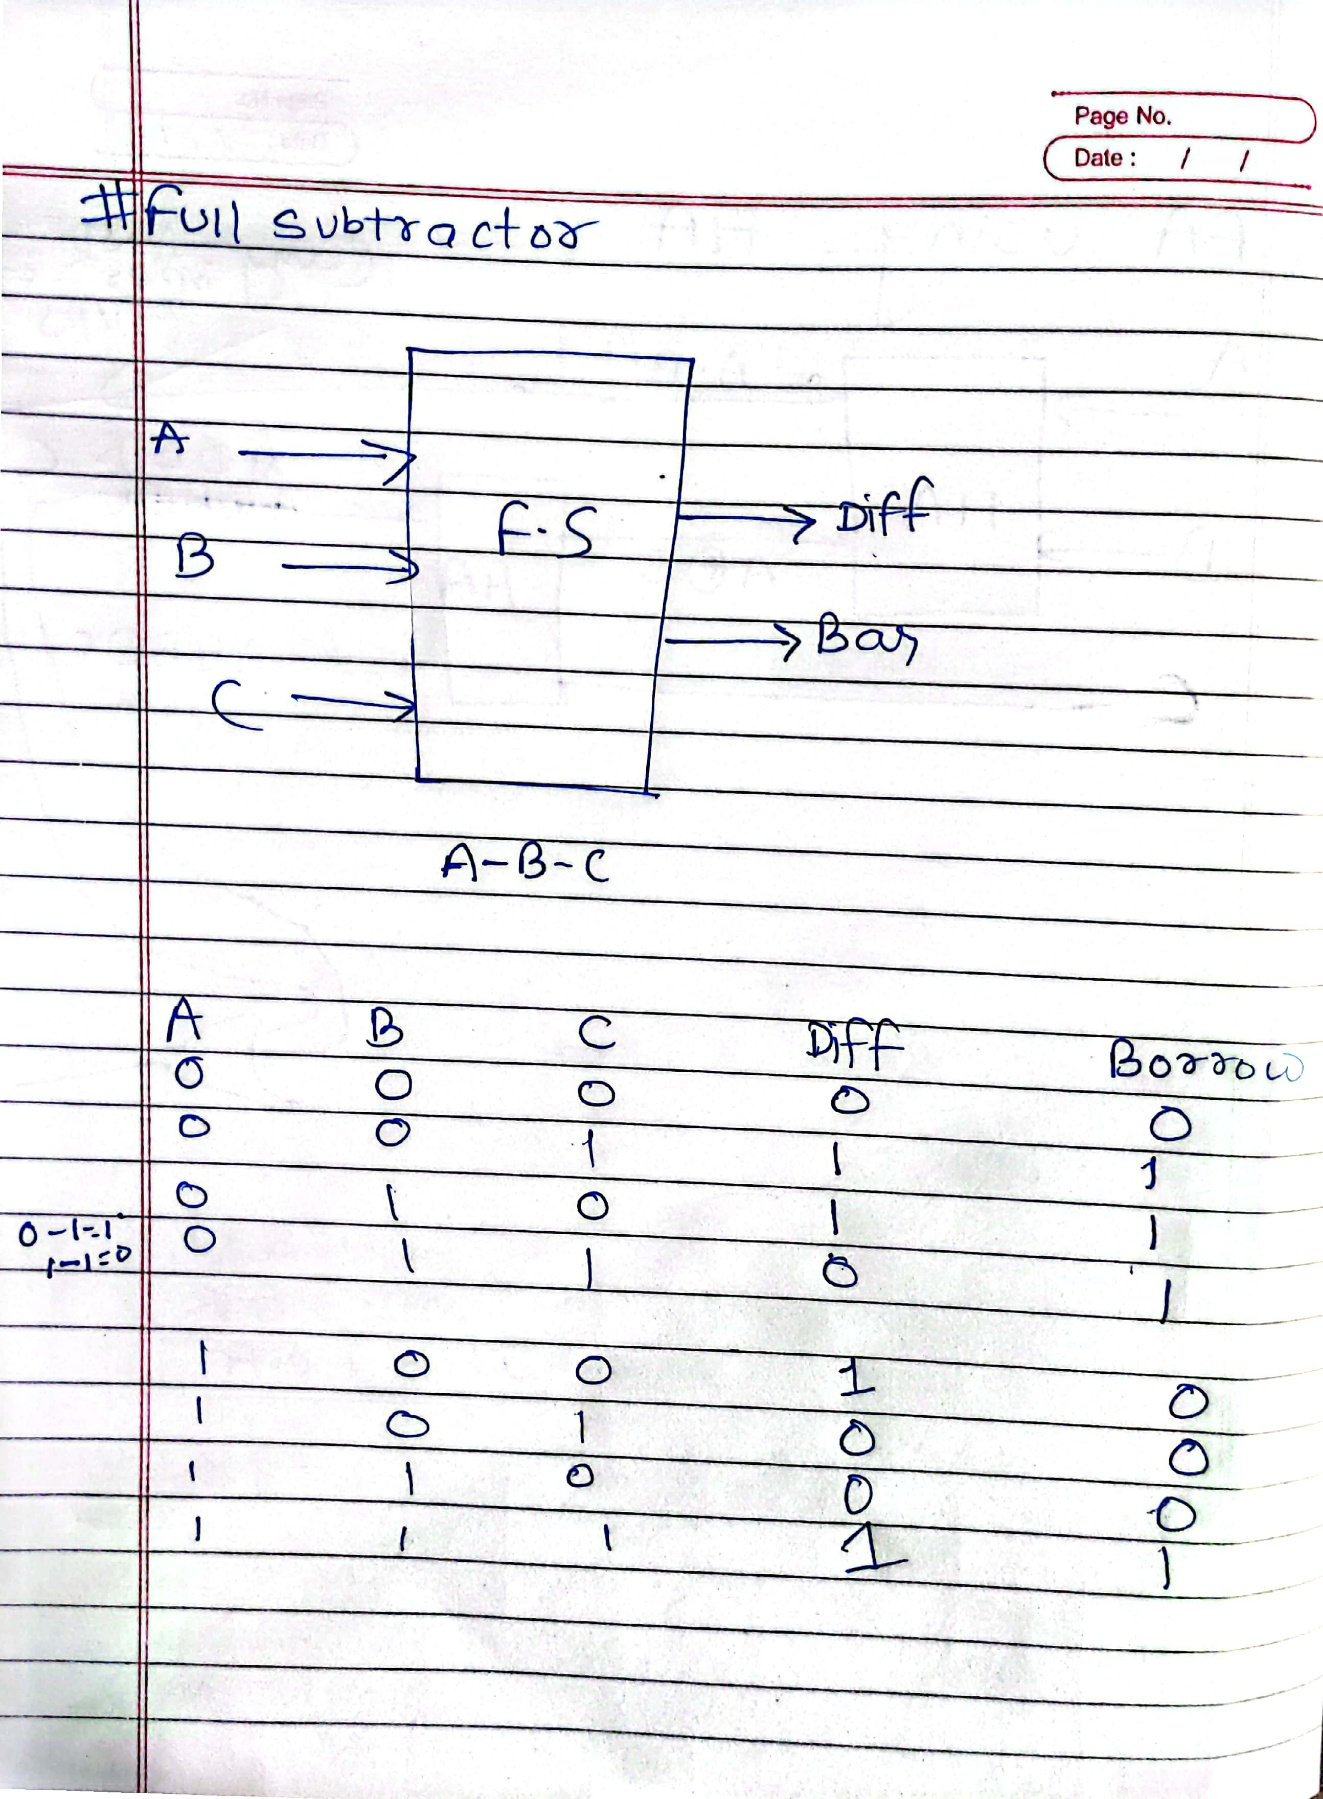 Page No.
Date : / /
# Full subtractor
A
B
C
F.S
Diff
Bar
A-B-C
A B C Diff Borrow
0 0 0 0 0
0 0 1 1 1
0 1 0 1 1
0-1=1
1-1=0
0 1 1 0 1
1 0 0 1 0
1 0 1 0 0
1 1 0 0 0
1 1 1 1 1